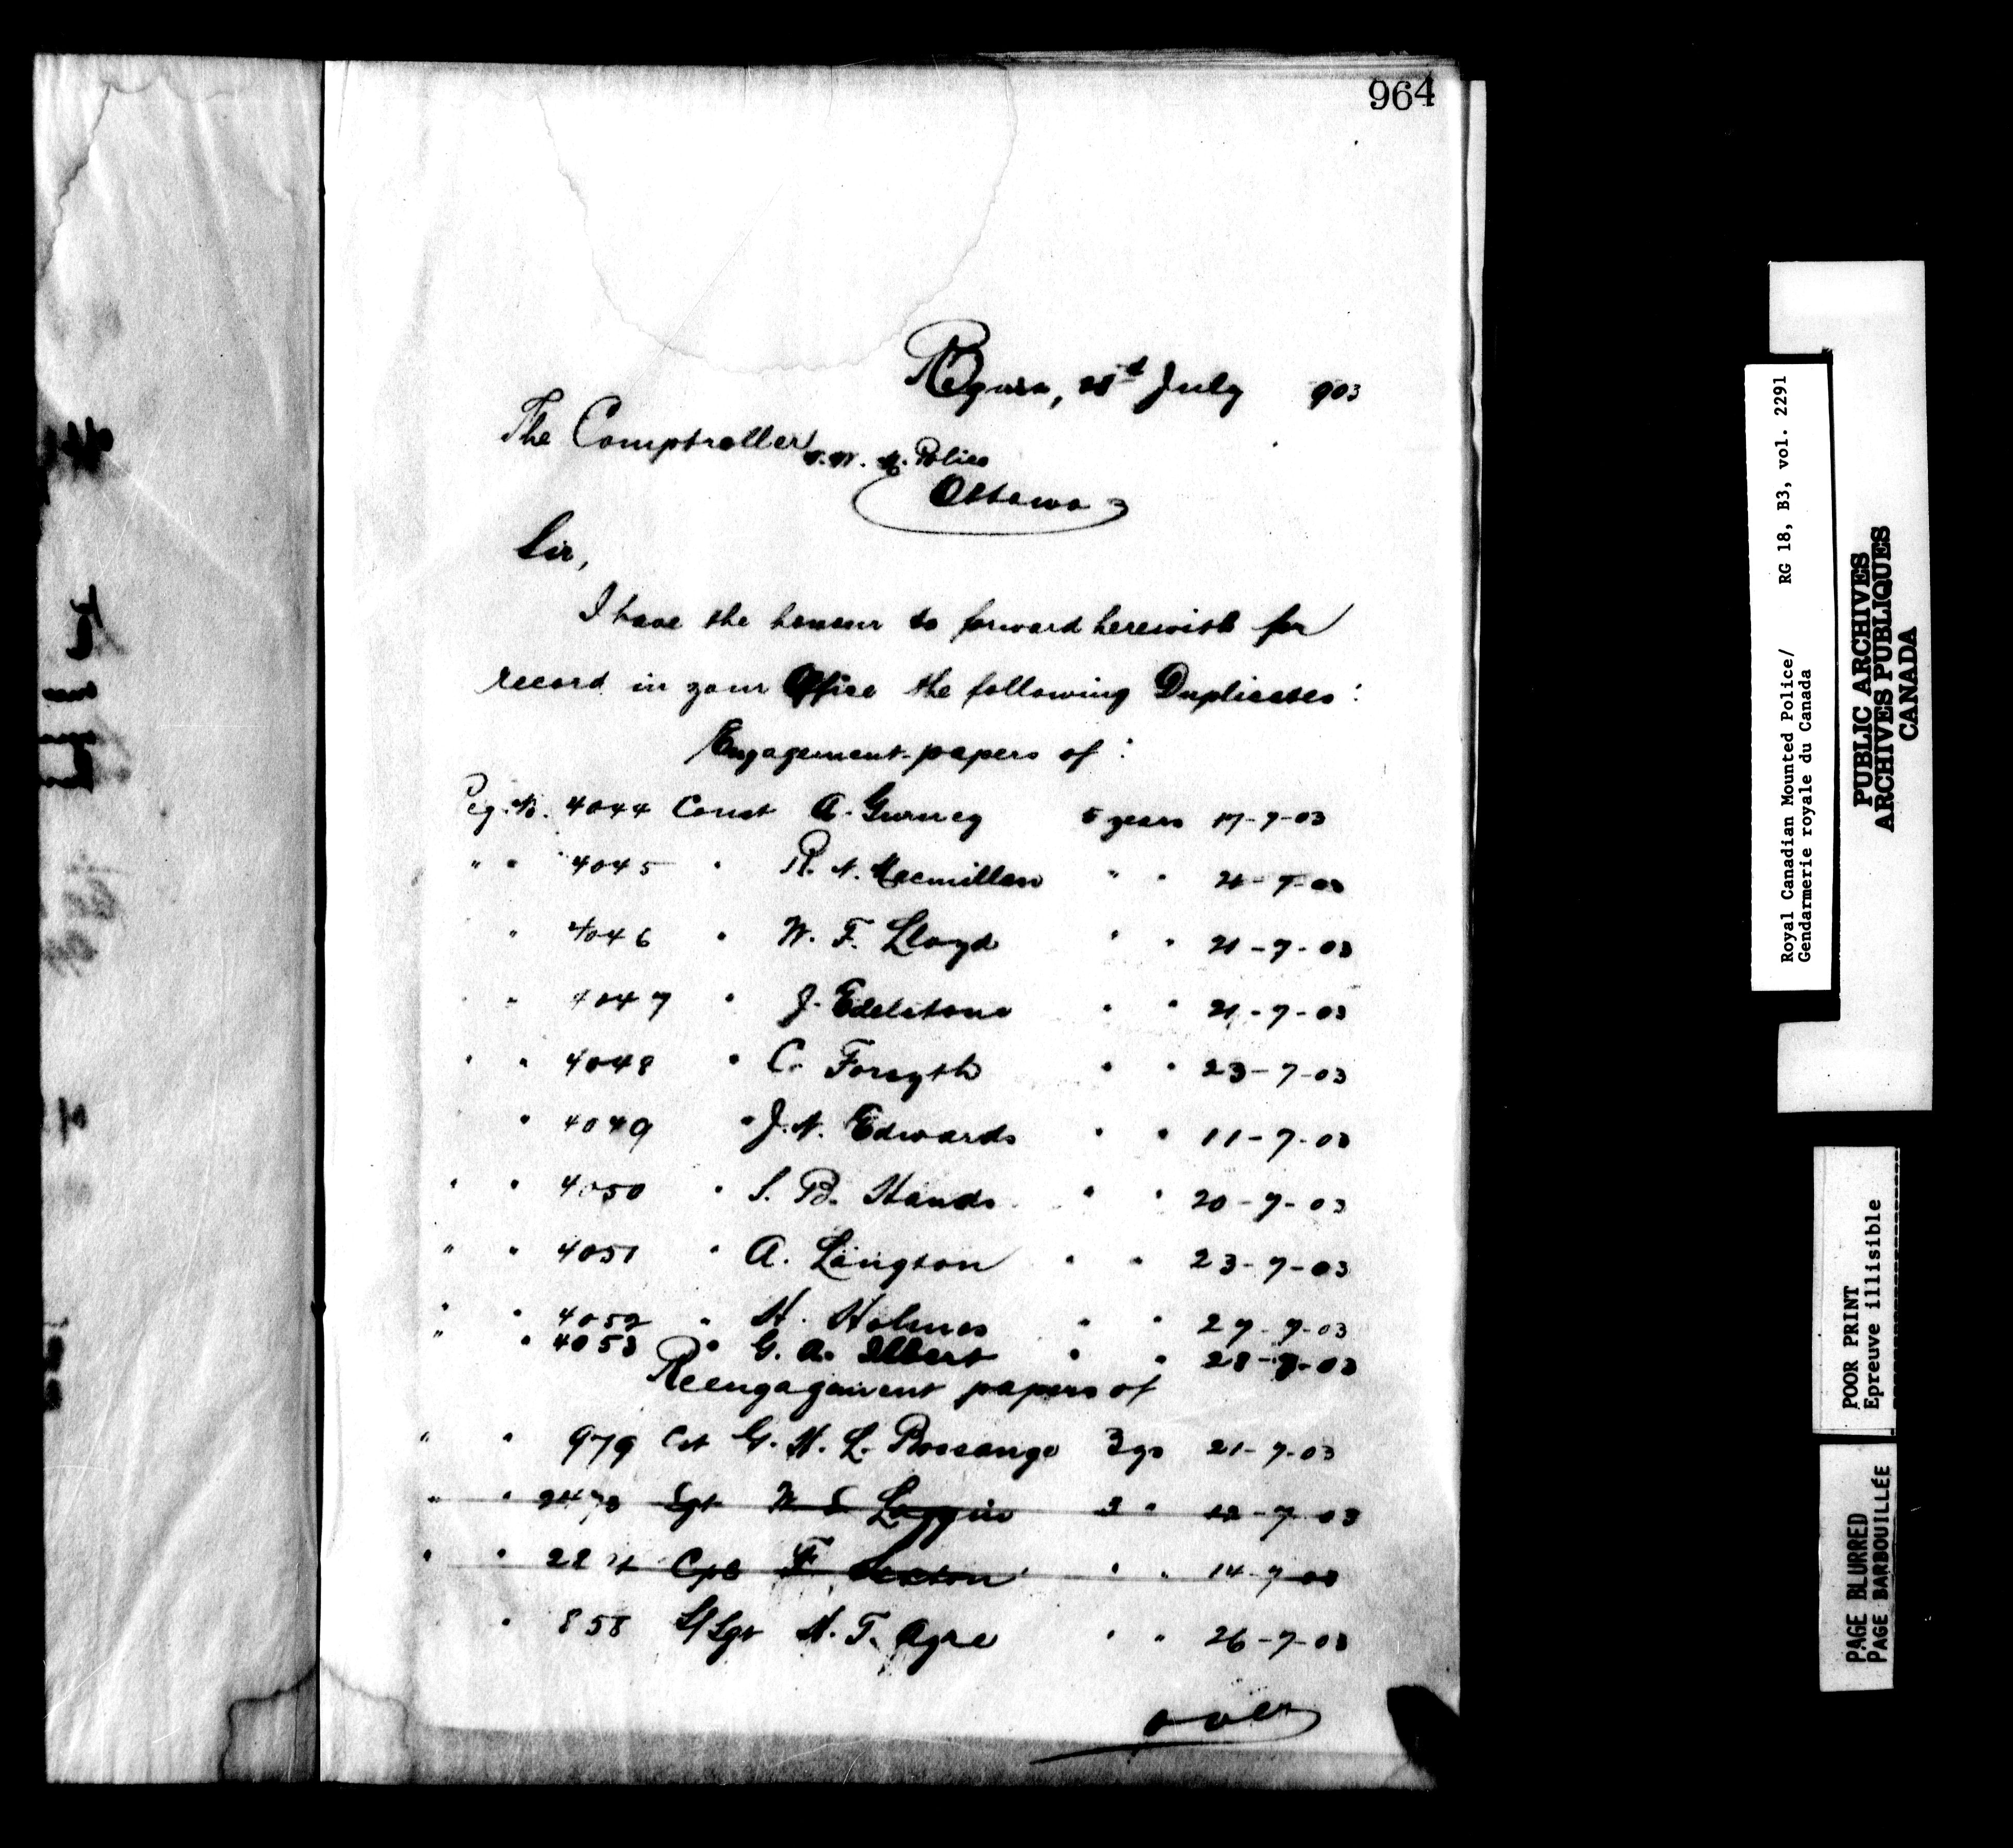 964
Regina, July 903
The Comptroller
N. W. M. Police
Ottawa
Sir,
I have the honour to forward herewith for
record in your Office the following Duplicates:
Engagement papers of:
Reg. No. 4044 Const A. Gurney 5 years 17-7-03
" " 4045 " R. N. Macmillan " " 21-7-03
" 4046 " W. F. Lloyd " " 21-7-03
" " 4047 " J. Edelstone " " 21-7-03
" " 4048 " C. Forsyth " " 23-7-03
" 4049 " J. N. Edwards " " 11-7-03
" " 4050 " S. B. Hands " " 20-7-03
" " 4051 " A. Langton " " 23-7-03
" " 4052 " H. Holmes " " 27-7-03
" " 4053 " G. A. Ilbert " " 28-7-03
Reengagement papers of
" " 979 Cst G. H. L. Bossange 3 ys 21-7-03
" " Sgt W S 3 " -7-03
" " Cpl F " " 14-7-03
" 858 S/Sgt H. T. Ayre " " 26-7-03
over
Royal Canadian Mounted Police/ RG 18, B3, vol. 2291
Gendarmerie royale du Canada
PUBLIC ARCHIVES
ARCHIVES PUBLIQUES
CANADA
POOR PRINT
Epreuve illisible
PAGE BLURRED
PAGE BARBOUILLÉE